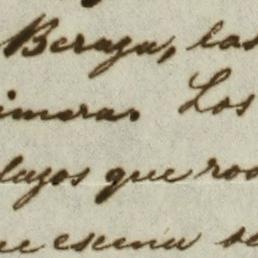 Beraza, las
imeras. Los
lazos que rod
ue escena se